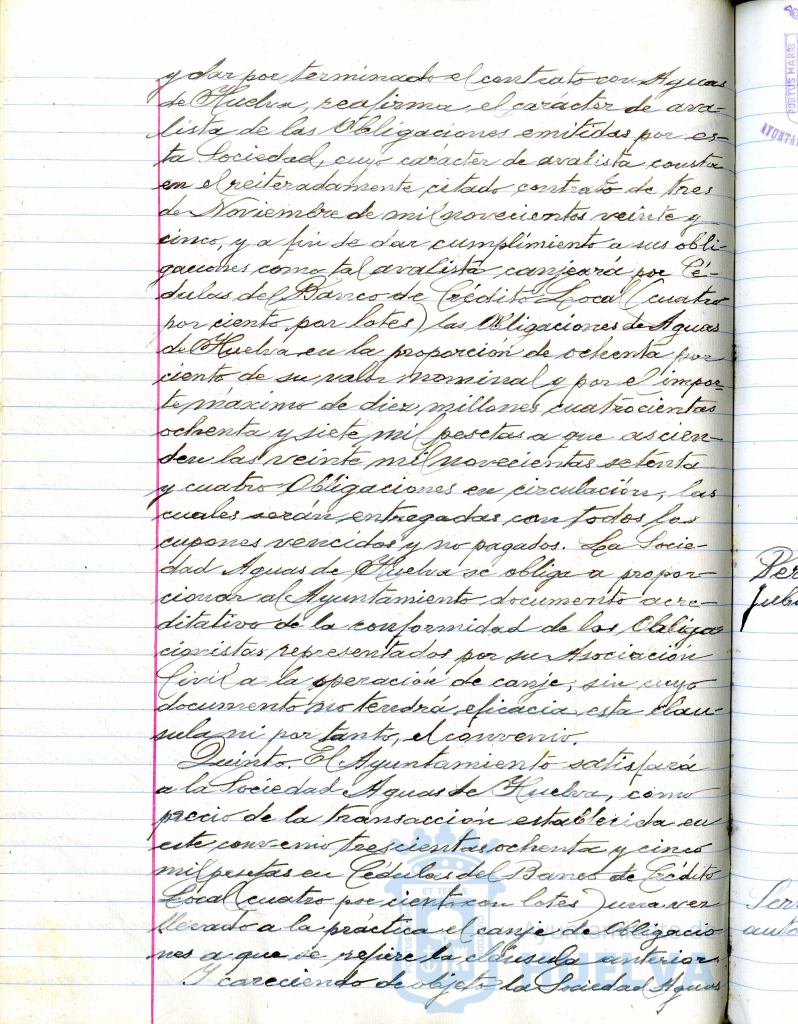 y dar por terminado el contrato con Aguas
de Huelva, reafirma el carácter de ava-
lista de las Obligaciones emitidas por es-
ta Sociedad, cuyo carácter de avalista consta
en el reiteradamente citado contrato de tres
de Noviembre de mil novecientos veinte y
cinco, y a fin de dar cumplimiento a sus obli-
gaciones como tal avalista canjeará por Cé-
dulas del Banco de Crédito Local (cuatro
por ciento por lotes) las Obligaciones de Aguas
de Huelva en la proporción de ochenta por
ciento de su valor nominal y por el impor-
te máximo de diez millones cuatrocientas
ochenta y siete mil pesetas a que ascien-
den las veinte mil novecientas setenta
y cuatro Obligaciones en circulación, las
cuales serán entregadas con todos los
cupones vencidos y no pagados. La Socie-
dad Aguas de Huelva se obliga a propor-
cionar al Ayuntamiento documento acre-
ditativo de la conformidad de los Obliga
cionistas representados por su Asociación
Civil a la operación de canje, sin cuyo
documento no tendrá eficacia esta cláu-
sula ni por tanto, el convenio.
Quinto. El Ayuntamiento satisfará
a la Sociedad Aguas de Huelva, como
precio de la transacción establecida en
este convenio trescientas ochenta y cinco
mil pesetas en Cédulas del Banco de Crédito
Local (cuatro por ciento con lotes) una vez
llevado a la práctica el canje de Obligacio
nes a que se refiere la cláusula anterior.
Y careciendo de objeto la Sociedad Aguas
Ayuntamiento de
HUELVA
PORTUS MARIS